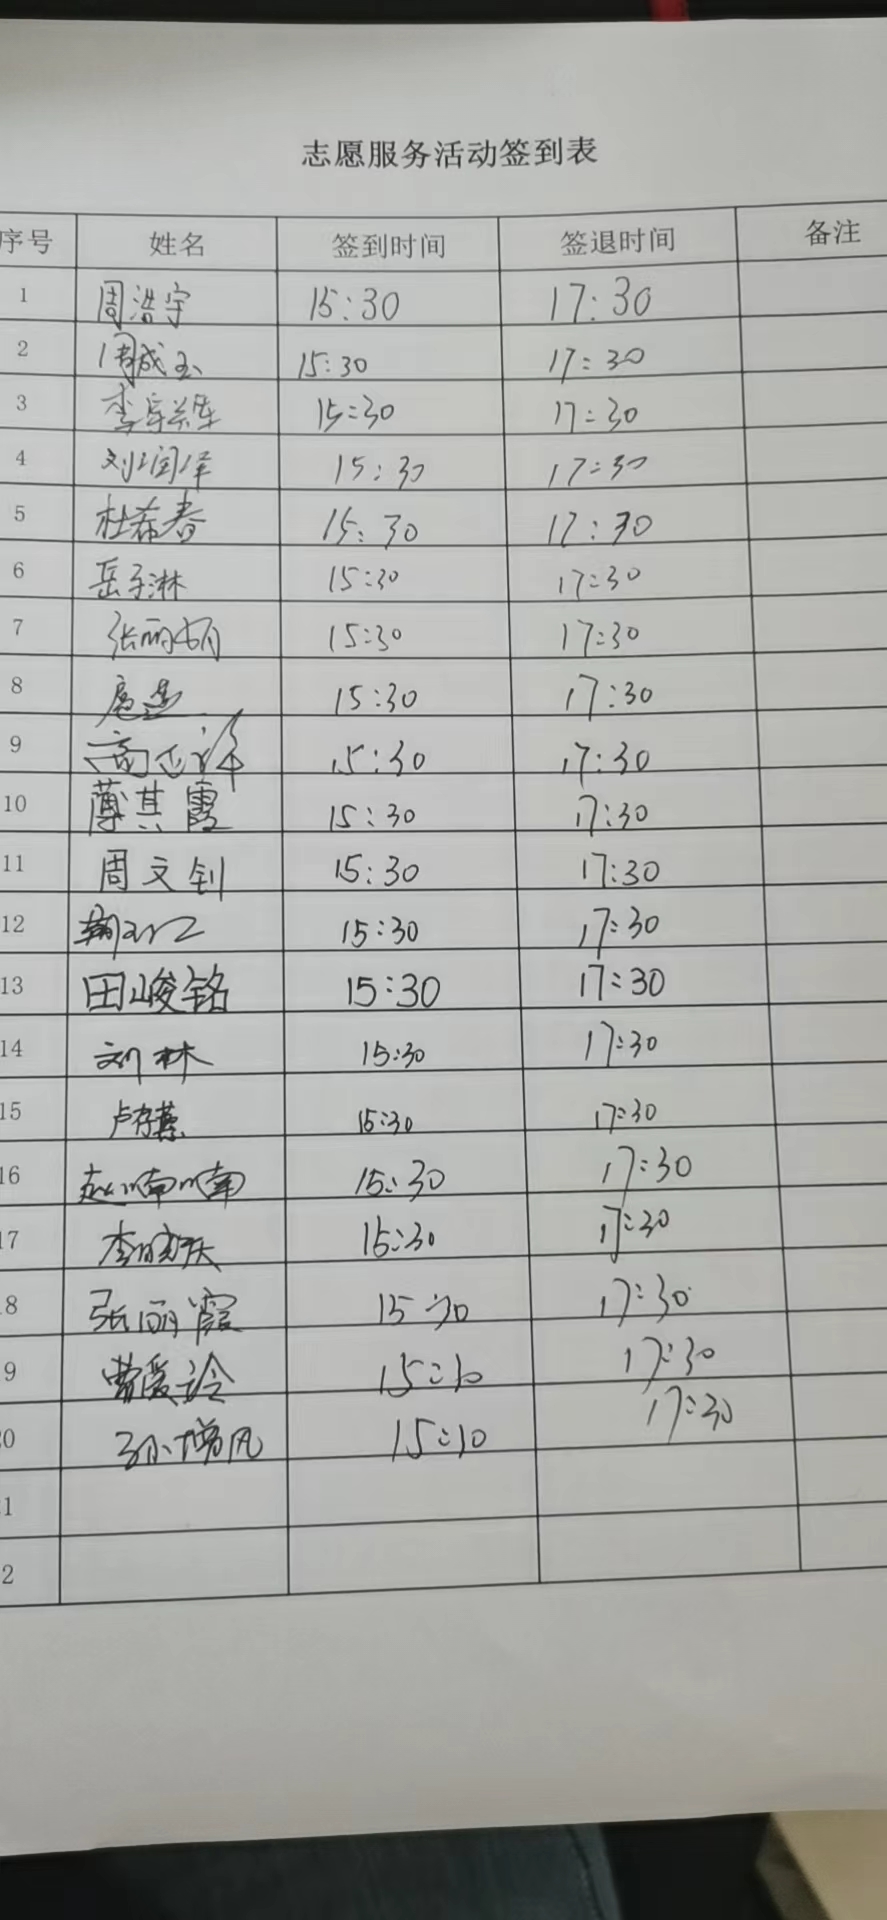 志愿服务活动签到表
序号 姓名 签到时间 签退时间 备注
1 周浩宇 15:30 17:30
2 周成玉 15:30 17:30
3 李 15:30 17:30
4 刘润泽 15:30 17:30
5 杜希春 15:30 17:30
6 岳子淋 15:30 17:30
7 张丽娟 15:30 17:30
8 15:30 17:30
9 15:30 17:30
10 薄其霞 15:30 17:30
11 周文钊 15:30 17:30
12 15:30 17:30
13 田峻铭 15:30 17:30
14 刘林 15:30 17:30
15 卢存 15:30 17:30
16 赵楠楠 15:30 17:30
17 李 15:30 17:30
8 张丽霞 15:30 17:30
9 曹爱玲 15:30 17:30
0 孙增凤 15:30 17:30
1
2